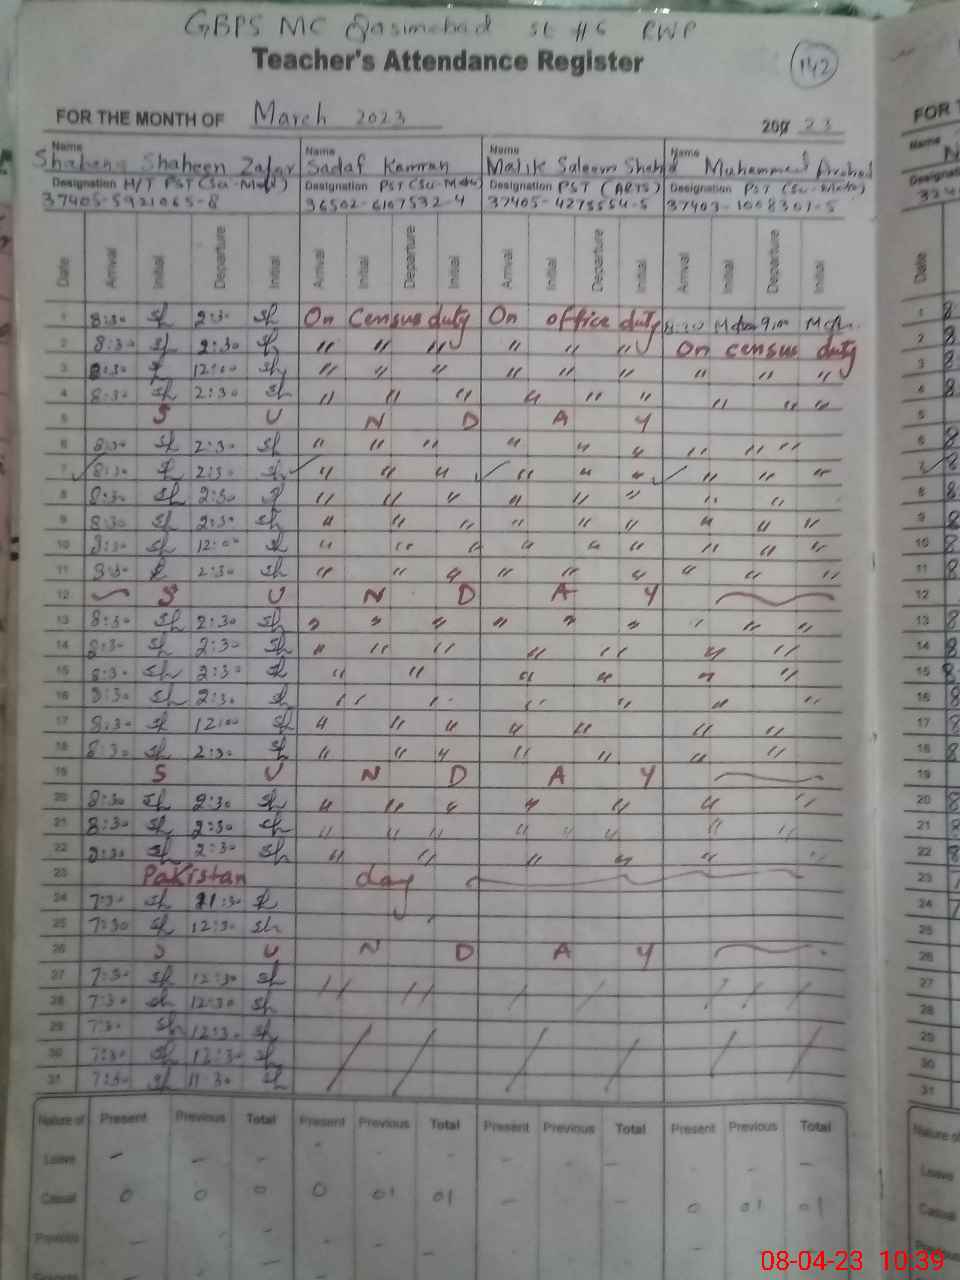 GBPS MC Qasimabad St #6 RWP
Teacher's Attendance Register
142
FOR THE MONTH OF March 2023
2023
Name Shaheen Zafar Name Sadaf Kamran Name Malik Saleem Shahid Name Muhammad Arshad
Designation H/T PST (Sc-Math) Designation PST (Sc-Math) Designation PST (ARTS) Designation PST (Sc-Math)
37405-5921065-8 36502-6107532-4 37405-4275554-5 37403-1008301-5
Date Arrival Initial Departure Initial Arrival Initial Departure Initial Arrival Initial Departure Initial Arrival Initial Departure Initial
1 8:30 sh 2:30 sh On Census duty On office duty 8:30 9:00
2 8:30 sh 2:30 sh " " " " " " On census duty
3 8:30 12:00 sh " " " " " " " " "
4 8:30 sh 2:30 sh " " " " " " " " "
5 S U N D A Y
6 8:30 sh 2:30 sh " " " " " " " " "
7 8:30 2:30 sh " " " " " " " " "
8 8:30 sh 2:30 " " " " " " " "
9 8:30 sh 2:30 sh " " " " " " " " "
10 8:30 sh 12:00 sh " " " " " " " " "
11 8:30 2:30 sh " " " " " " " " "
12 S U N D A Y
13 8:30 sh 2:30 sh " " " " " " " " "
14 8:30 sh 2:30 sh " " " " " " "
15 8:30 sh 2:30 sh " " " " " "
16 8:30 sh 2:30 sh " " " " " "
17 8:30 sh 12:00 sh " " " " " " "
18 8:30 sh 2:30 sh " " " " " " "
19 S U N D A Y
20 8:30 sh 2:30 sh " " " " " " "
21 8:30 sh 2:30 sh " " " " " " " "
22 8:30 sh 2:30 sh " " " " "
23 Pakistan day
24 7:30 sh sh
25 7:30 sh 12:30 sh
26 S U N D A Y
27 7:30 sh 12:30 sh
28 7:30 sh 12:30 sh
29 7:30 sh 12:30 sh
30 7:30 sh 12:30 sh
31 7:30 sh 11:30 sh
Nature of Present Previous Total Present Previous Total Present Previous Total Present Previous Total
Leave - - - - - - - - - - -
Casual 0 0 0 0 01 01 - - - 0 01 01
Previous
08-04-23 10:39